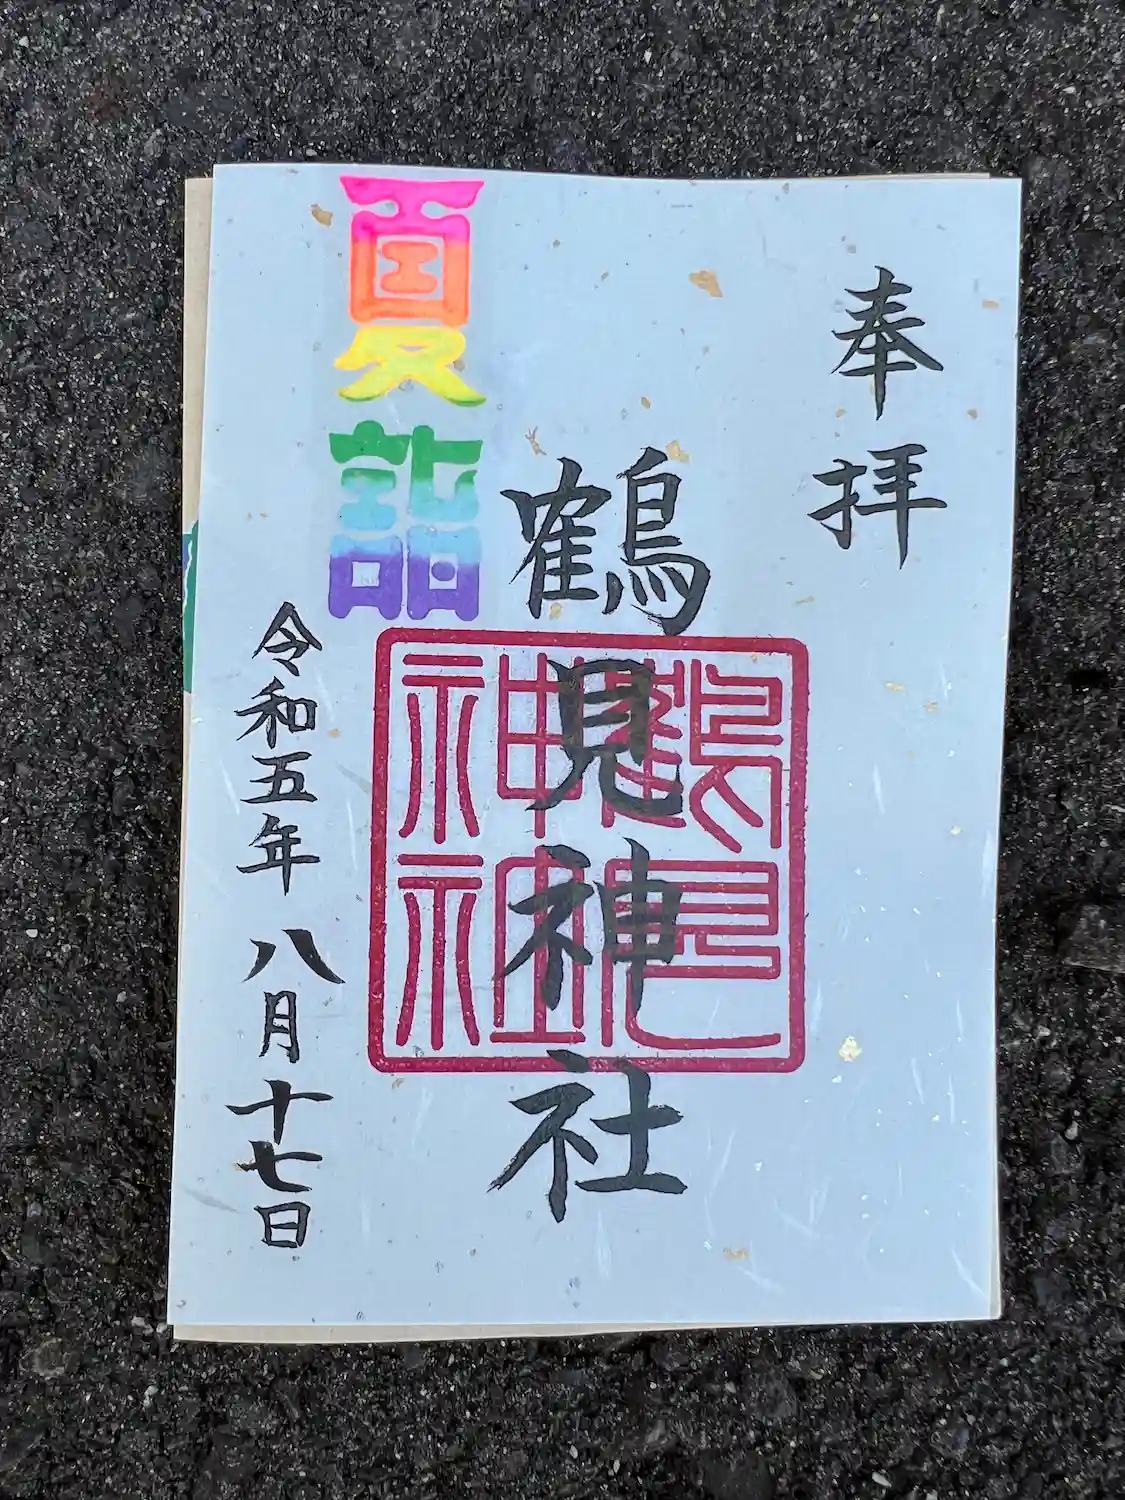 奉拝
鶴見神社
鶴見
神社
夏詣
令和五年 八月十七日